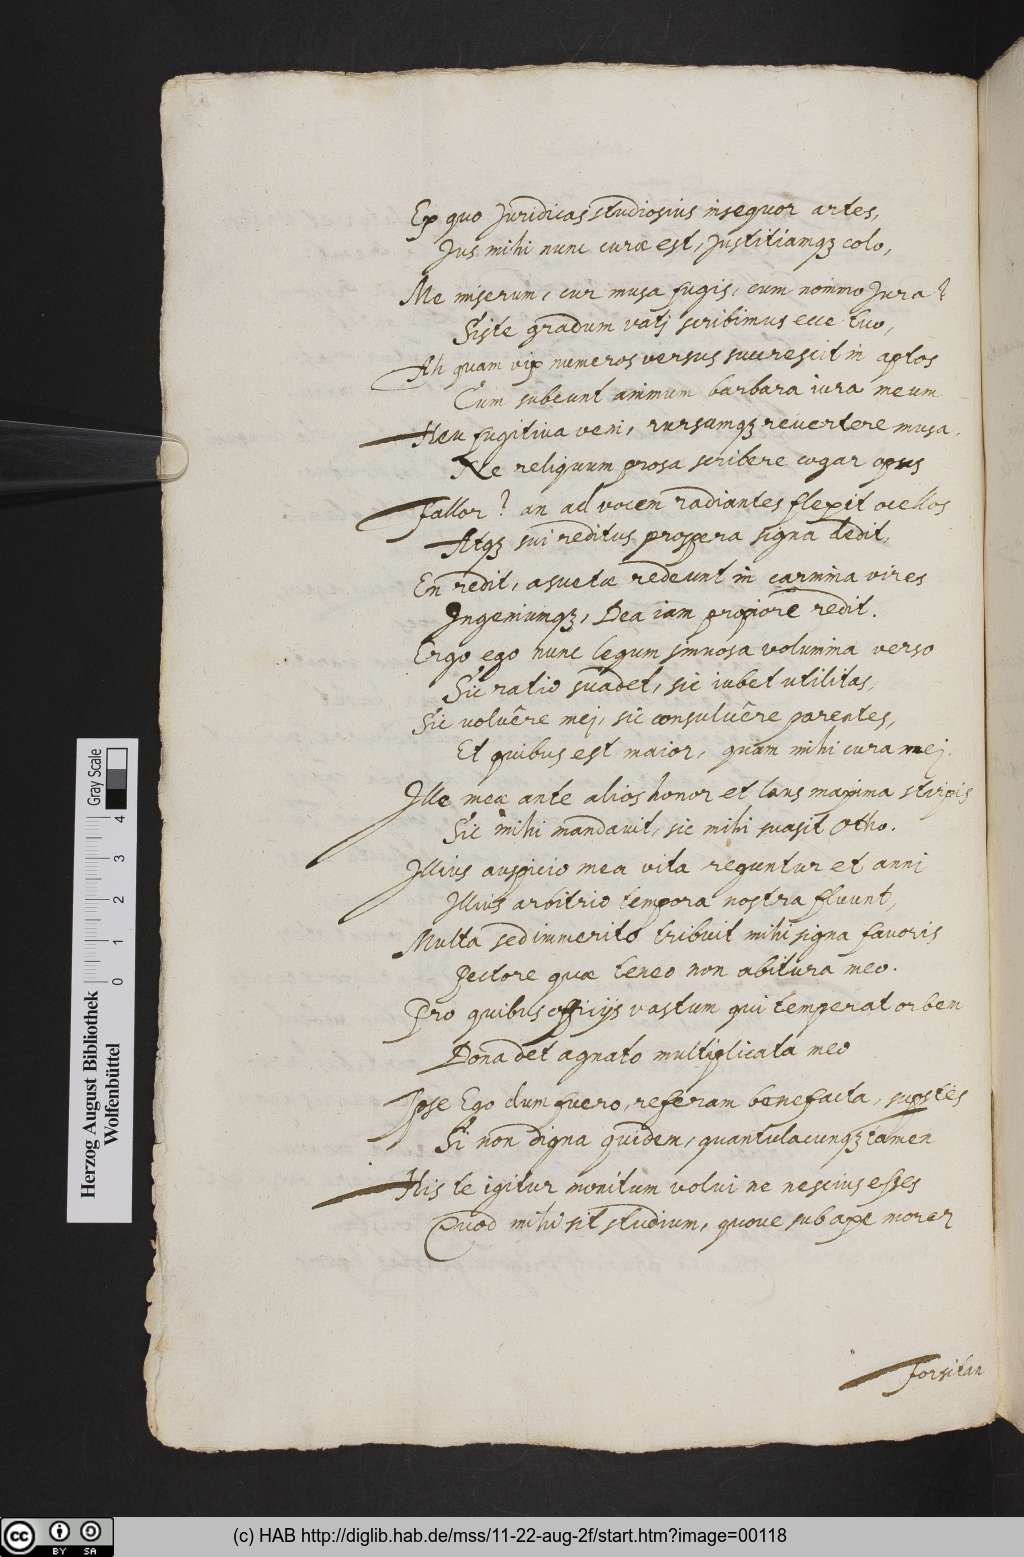 Ex quo Juridicas studiosius insequor artes,
Jus mihi nunc curæ est, Justitiamqꝫ colo,
Me miserum, cur musa fugis, cum nomino Jura?
Siste gradum vatj scribimus ecce tuo,
Ah quam vix numeros versus succrescit in aptos
Cum subeunt animum barbara iura meum
Heu fugitiua veni, rursumqꝫ reuertere musa,
Ne reliquum prosa scribere cogar opus
Fallor? an ad vocem radiantes flexit ocellos
Atqꝫ sui reditus prospera signa dedit,
En redit, asuetæ redeunt in carmina vires
Ingeniumqꝫ, Dea iam propiore redit.
Ergo ego nunc legum sinuosa volumina verso
Sic ratio suadet, sic iubet utilitas,
Sic voluêre mej, sic consuluêre parentes,
Et quibus est maior, quam mihi cura mej.
Ille meæ ante alios honor et laus maxima stirpis
Sic mihi mandauit, sic mihi suasit Otho.
Illius auspicio mea vita reguntur et anni
Illius arbitrio tempora nostra fluunt,
Multa sed immerito tribuit mihi signa fauoris
Pectore quæ teneo non abitura meo.
Pro quibus officijs vastum qui temperat orbem
Dona det agnato multiplicata meo
Ipse Ego dum fuero, referam benefacta, suostes
Si non digna quidem, quantulacunqꝫ tamen
His te igitur monitum volui ne nescius esses
Quod mihi sit studium, quoue sub axe morer
Forsitan
Gray Scale
0 1 2 3 4
Herzog August Bibliothek
Wolfenbüttel
cc BY SA
(c) HAB http://diglib.hab.de/mss/11-22-aug-2f/start.htm?image=00118